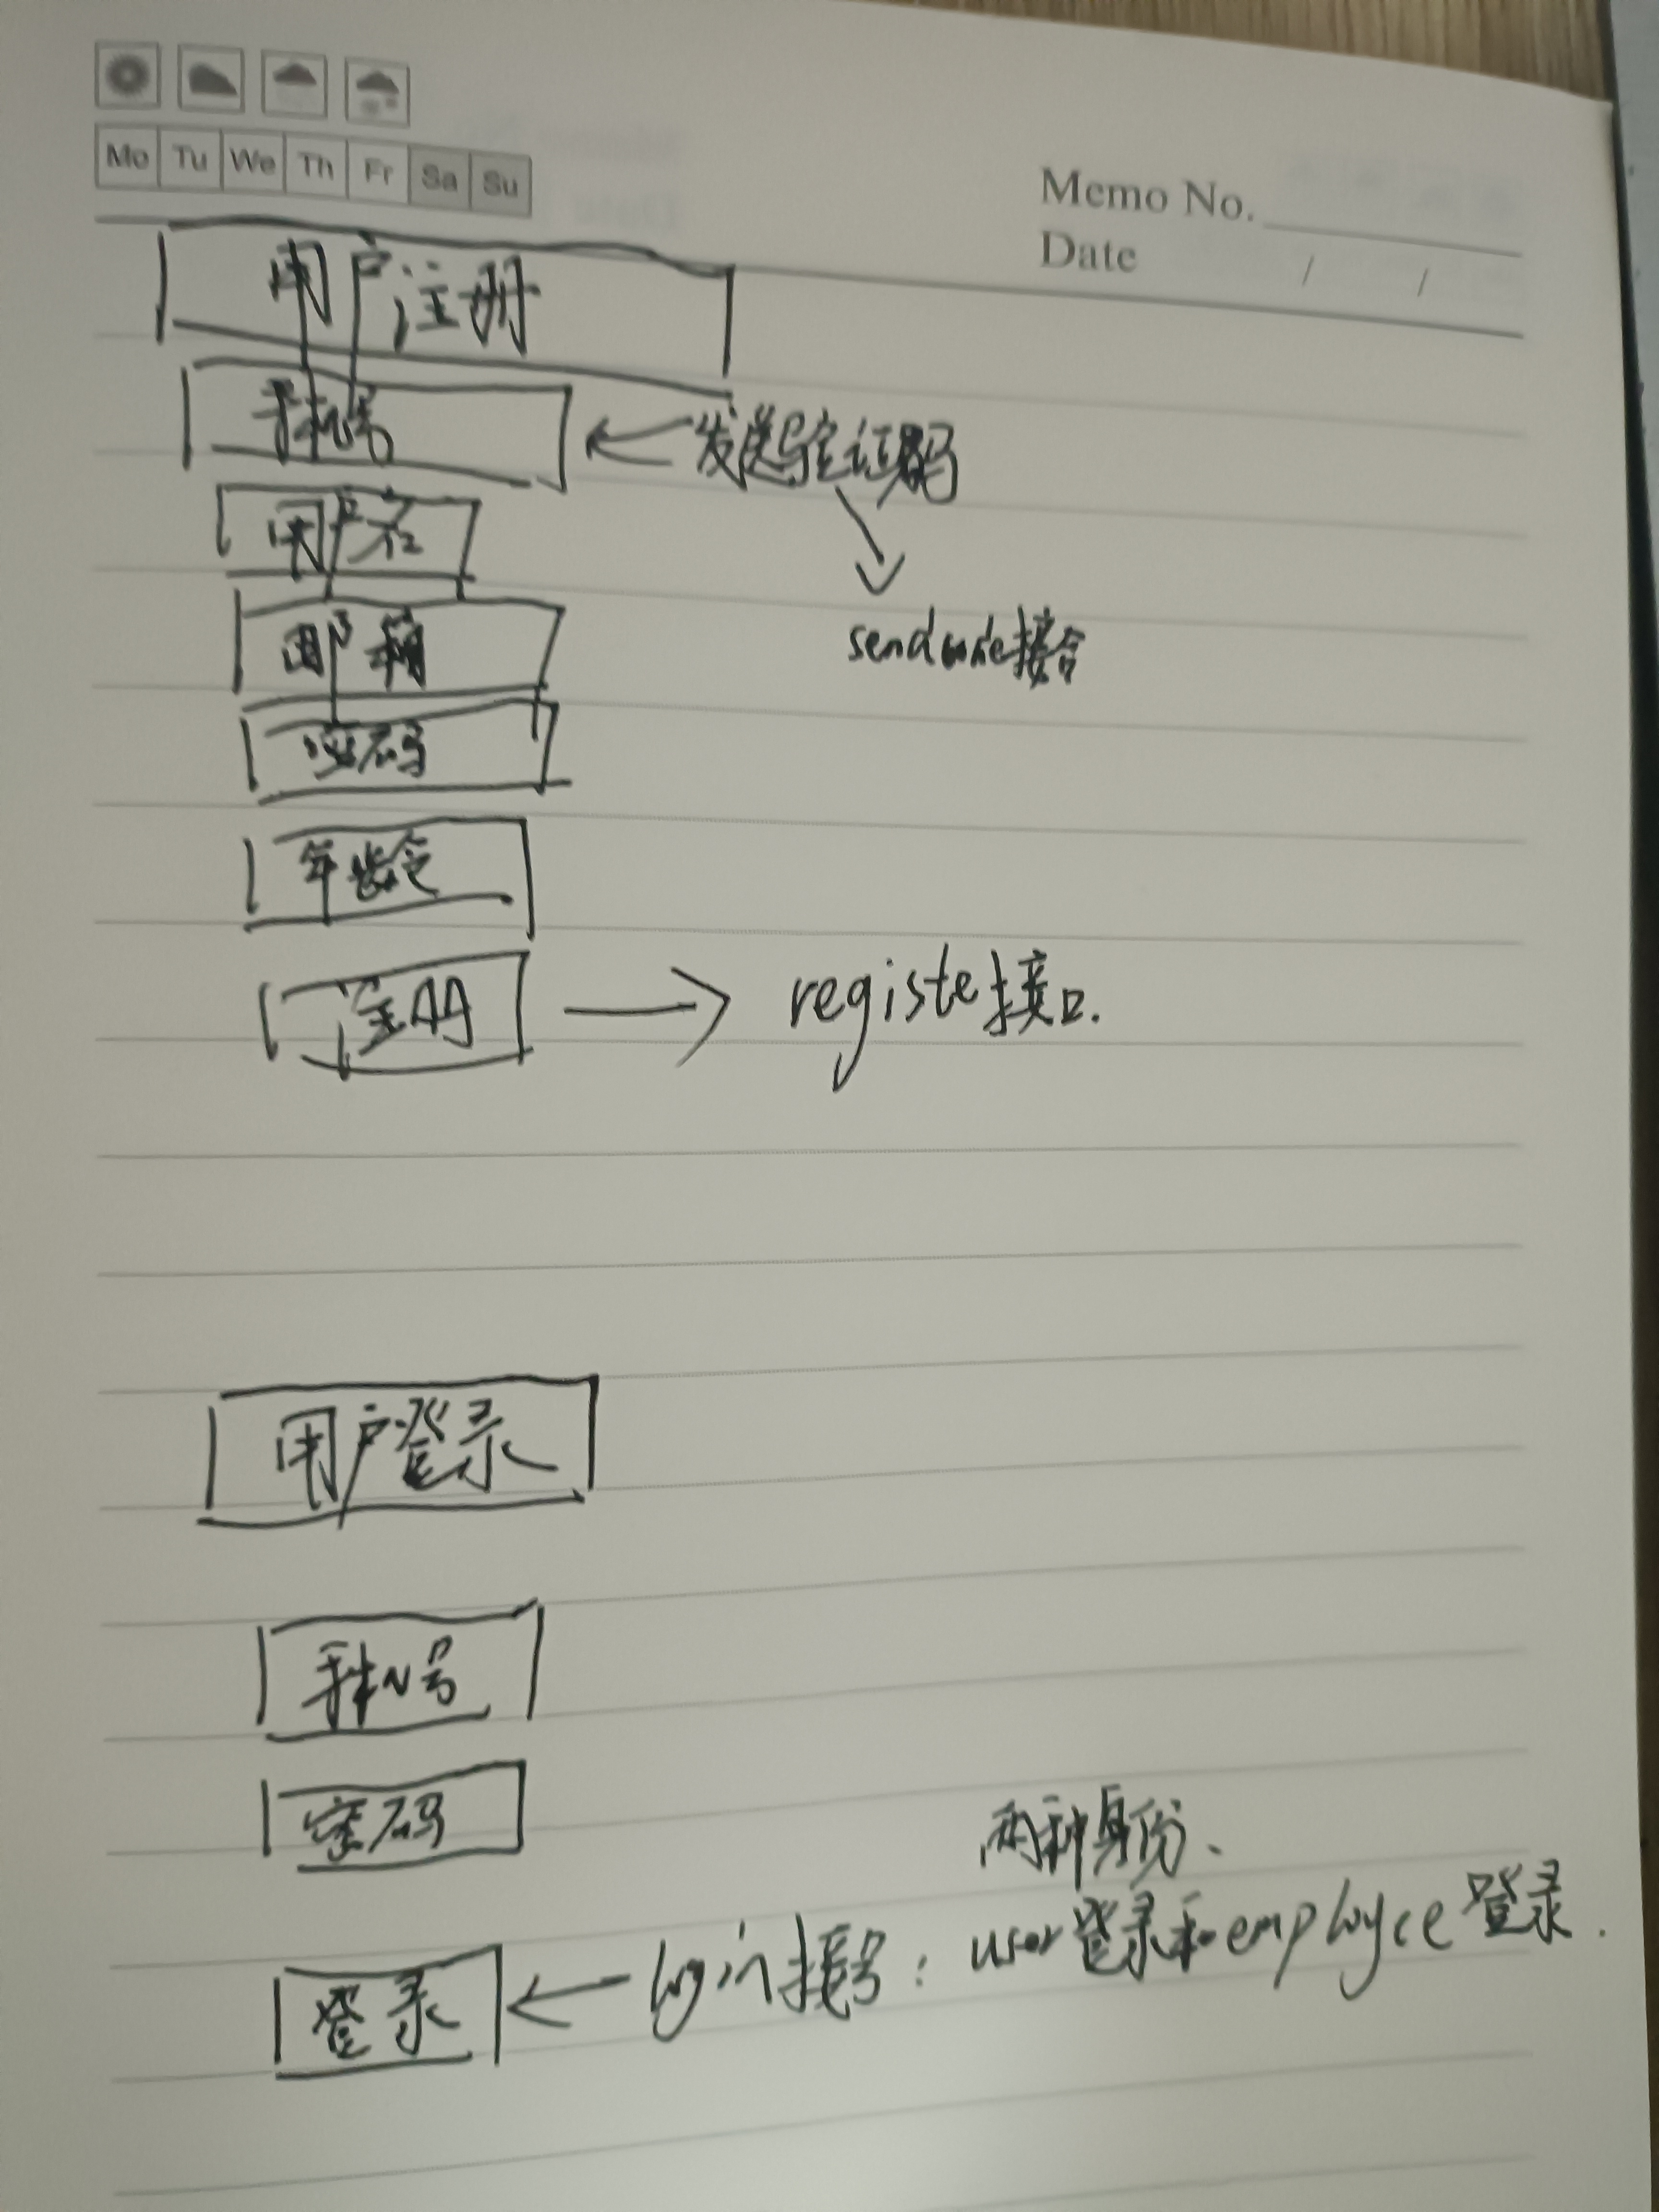 Mo Tu We Th Fr Sa Su
Memo No.
Date / /
用户注册
手机号
发送验证码
用户名
sendcode接口
邮箱
密码
年龄
注册
registe接口.
用户登录
手机号
密码
两种身份、
login接口: user登录和employee登录.
登录